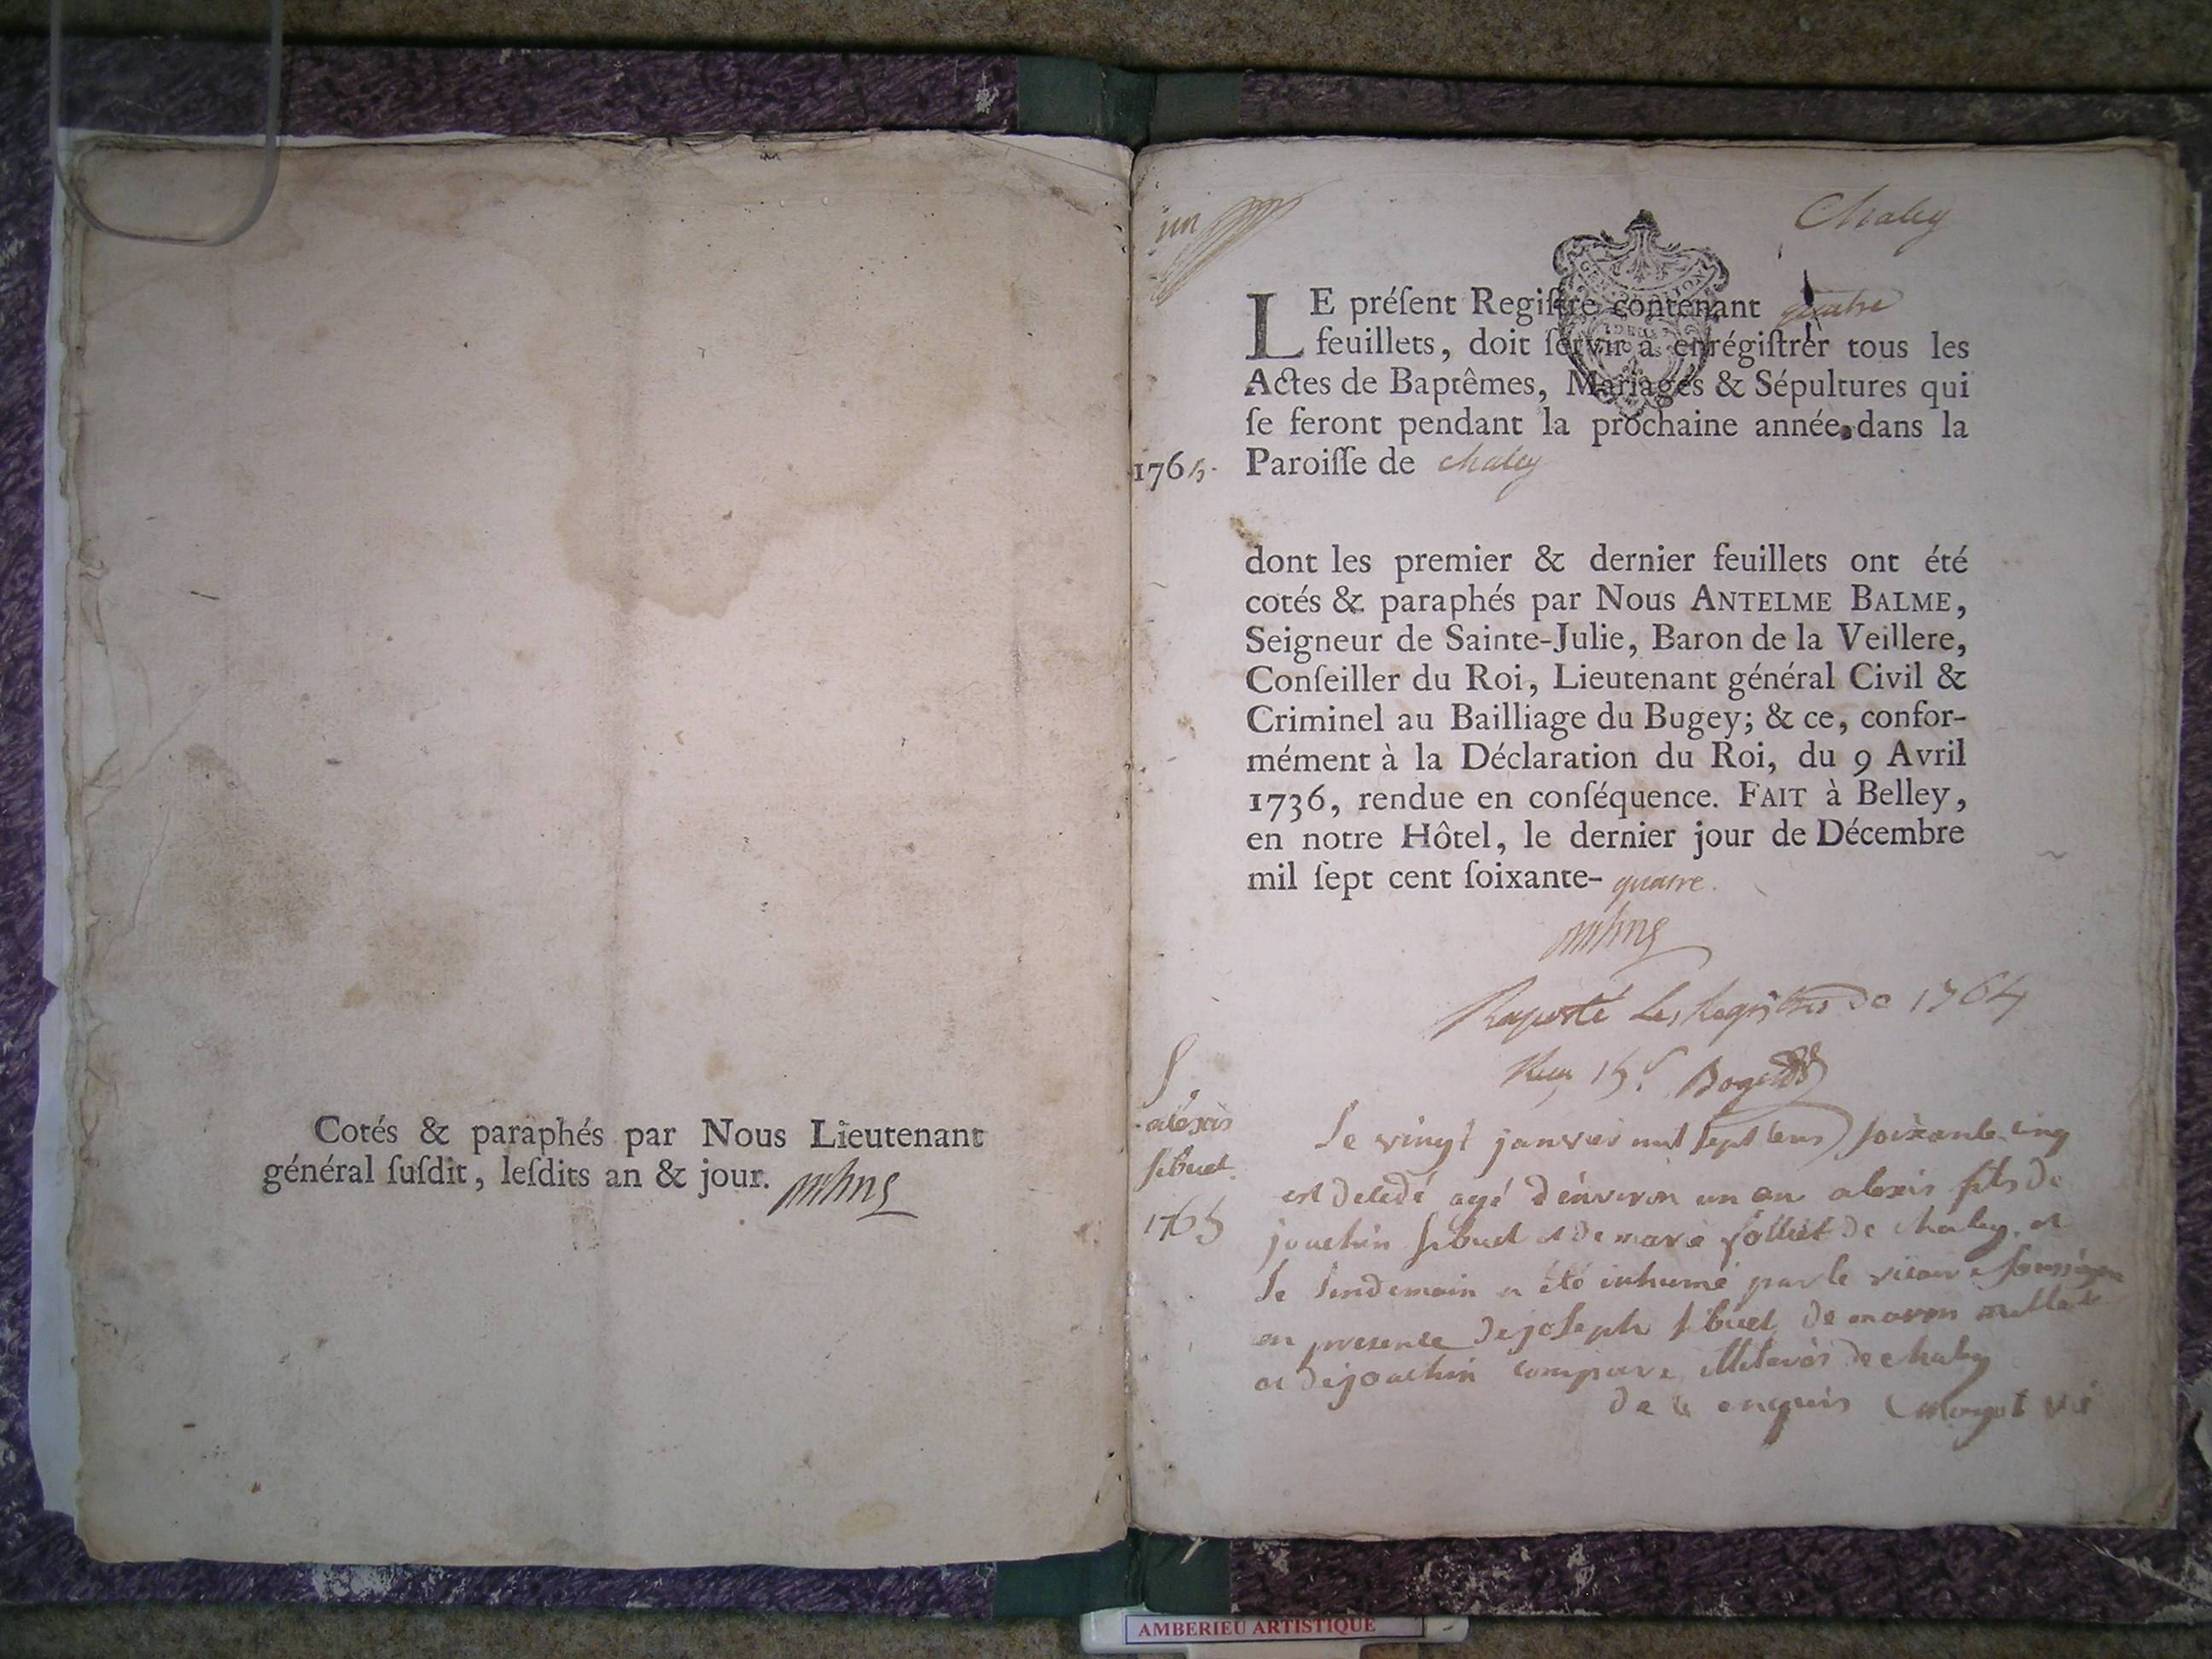 Cotés & paraphés par Nous Lieutenant
général ſuſdit, leſdits an & jour.
un
Chaley
LE préſent Regiſtre contenant quatre
feuillets, doit ſervir à enrégiſtrer tous les
Actes de Baptêmes, Mariages & Sépultures qui
ſe feront pendant la prochaine année dans la
1765. Paroiſſe de chaley
dont les premier & dernier feuillets ont été
cotés & paraphés par Nous ANTELME BALME,
Seigneur de Sainte-Julie, Baron de la Veillere,
Conſeiller du Roi, Lieutenant général Civil &
Criminel au Bailliage du Bugey; & ce, confor-
mément à la Déclaration du Roi, du 9 Avril
1736, rendue en conſéquence. FAIT à Belley,
en notre Hôtel, le dernier jour de Décembre
mil ſept cent ſoixante- quatre.
Raporté Les Registres de 1764
S.
alexis
sibuet
1765
Le vingt janvier mil sept cens soixante cinq
est decedé agé d'environ un an alexis fils de
joachin sibuet et de marie de chaley, et
le lendemain a été inhumé par le vicaire soussigné
en presence de joseph sibuet de
et de joachin compare illiterés de chaley
de ce enquis vic
AMBERIEU ARTISTIQUE